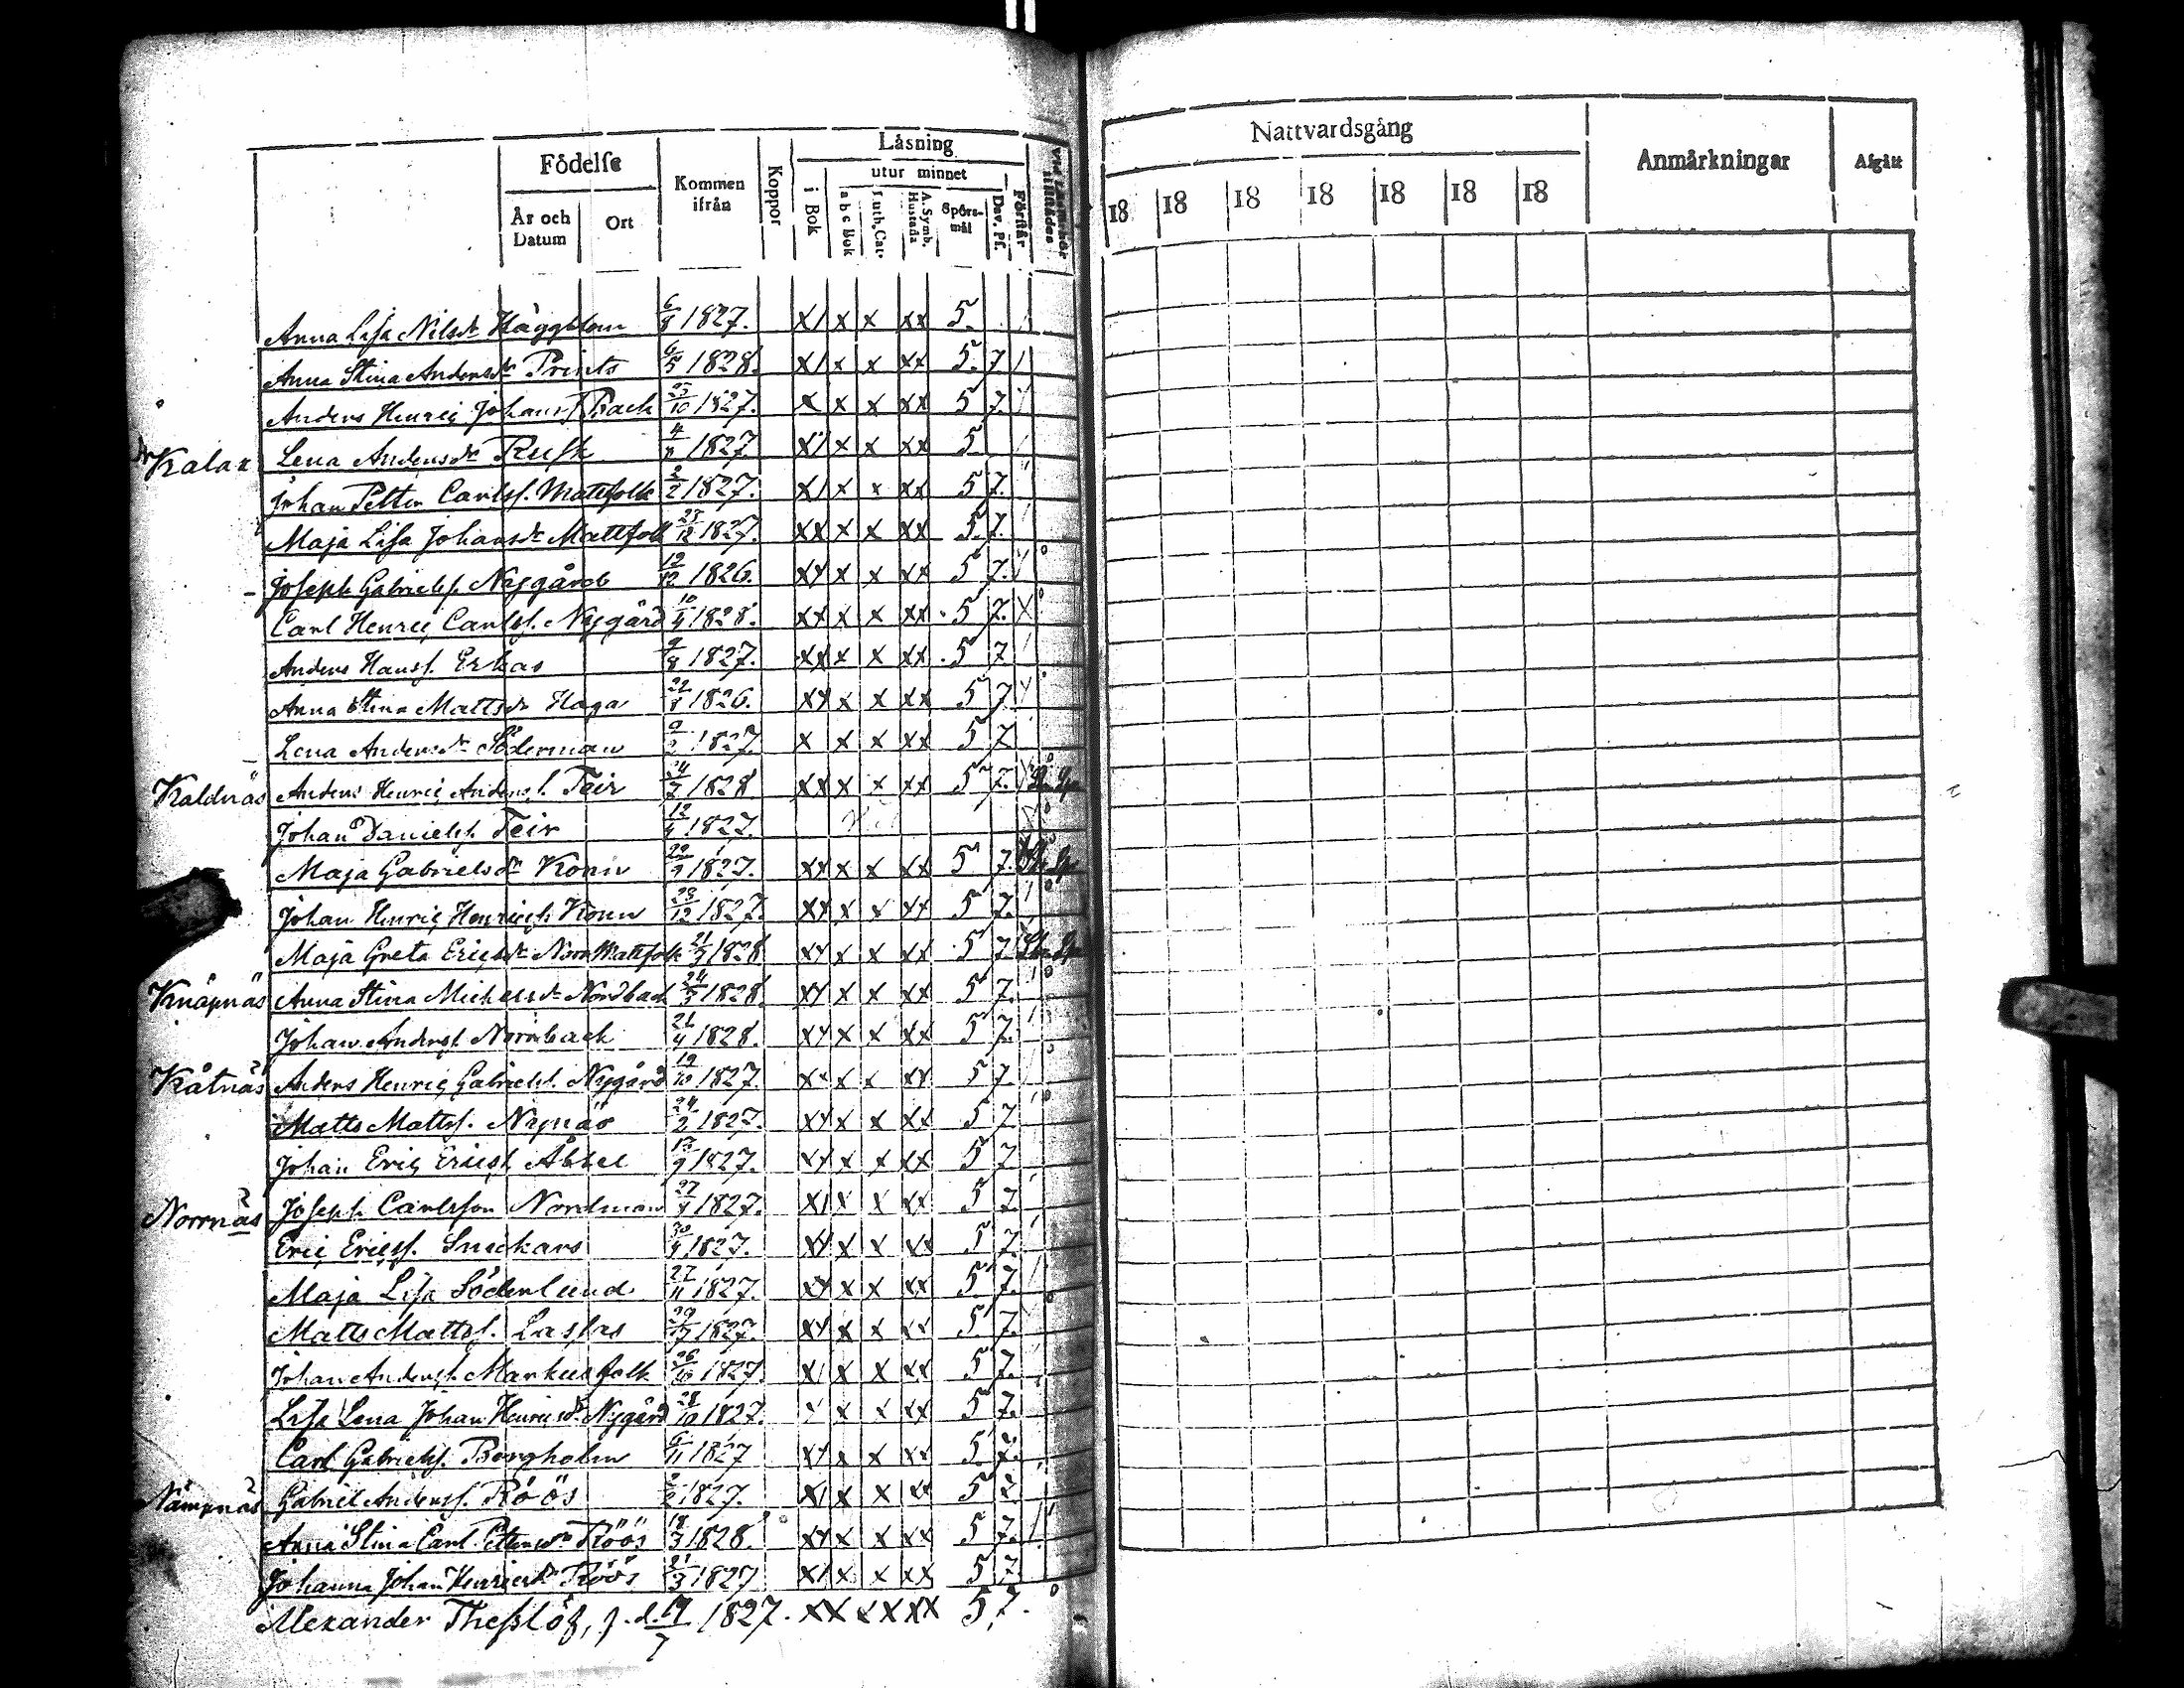 Födelse
År och Datum
Ort
Kommen ifrån
Koppor
Läsning
i Bok
utur minnet
a b c Bok
Luth. Cat.
A. Symb. Hustafla
Spörsmål
Dav. Ps.
Förstår
Nattvardsgång
18 18 18 18 18 18 18
Anmärkningar
Afgått
Anna Lisa Nilsdr Häggblom 6/8 1827. x/ x x xx 5.
Anna Stina Andersdr Prints 6/5 1828. x/ x x xx 5. 7 /
Anders Henric Johanss. Back 25/10 1827. x x x xx 5 7.
Kalax Lena Andersdr Rusk 1827. x/ x x xx 5
Johan Petter Carlss. Mattfolk 2/2 1827. x/ x x xx 5 7.
Maja Lisa Johansdr Mattfolk 28/12 1827. xx x x xx 5. 7.
Joseph Gabrielss. Nygård 19/12 1826. xx x x xx 5 7.
Carl Henric Carlss. Nygård 10/4 1828. xx x x xx 5 7. x
Anders Hanss. Erkas 9/8 1827. xx x x xx 5 7
Anna Stina Mattsdr Haga 22/8 1826. xx x x xx 5 7.
Lena Andersdr Söderman 1827 x x x xx 5 7
Kaldnäs Anders Henric Anderss. Teir 24/7 1828 xx x x xx 5 7.
Johan Danielss. Teir 12/4 1827.
Maja Gabrielsdr Konn 1827. xx x x xx 5 7.
Johan Henric Henricss. Konn 28/12 1827. xx x x xx 5 7.
Maja Greta Ericsdr Norr Mattfolk 21/3 1828 xx x x xx 5 7
Knåpnäs Anna Stina Michelsdr Nordback 24/3 1828. xx x x xx 5 7.
Johan Anderss. Norrback 21/4 1828. xx x x xx 5 7.
Kåtnäs Anders Henric Gabrielss. Nygård 19/10 1827. xx x x xx 5 7.
Matts Mattss. Nynäs 24/2 1827. xx x x xx 5 7
Johan Eric Ericss. Åbbee 1827. xx x x xx 5 7
Norrnäs Joseph Carlsson Nordman 27/4 1827. x/ x x xx 5 7.
Eric Ericss. Snickars 30/4 1827. xx x x xx 5 7.
Maja Lisa Söderlund 27/11 1827. xx x x xx 5 7.
Matts Mattss. Lassas 29/7 1827. xx x x xx 5 7.
Johan Anderss. Markusfolk 26/10 1827. x/ x x xx 5 7.
Lisa Lena Johan Henricsdr Nygård 28/10 1827. x x x xx 5 7.
Carl Gabrielss. Bergholm 6/11 1827 xx x x xx 5. 7.
Nämpnäs Gabriel Anderss. Röös 2/2 1827. x/ x x xx 5 7.
Anna Stina Carl Pettersdr Röös 18/3 1828. xx x x xx 5 7. /
Johanna Johan Henricsdr Röös 21/3 1827 x/ x x xx 5 7
Alexander Thesslöf, f. d. 19/7 1827. xx x x xx 5. 7.